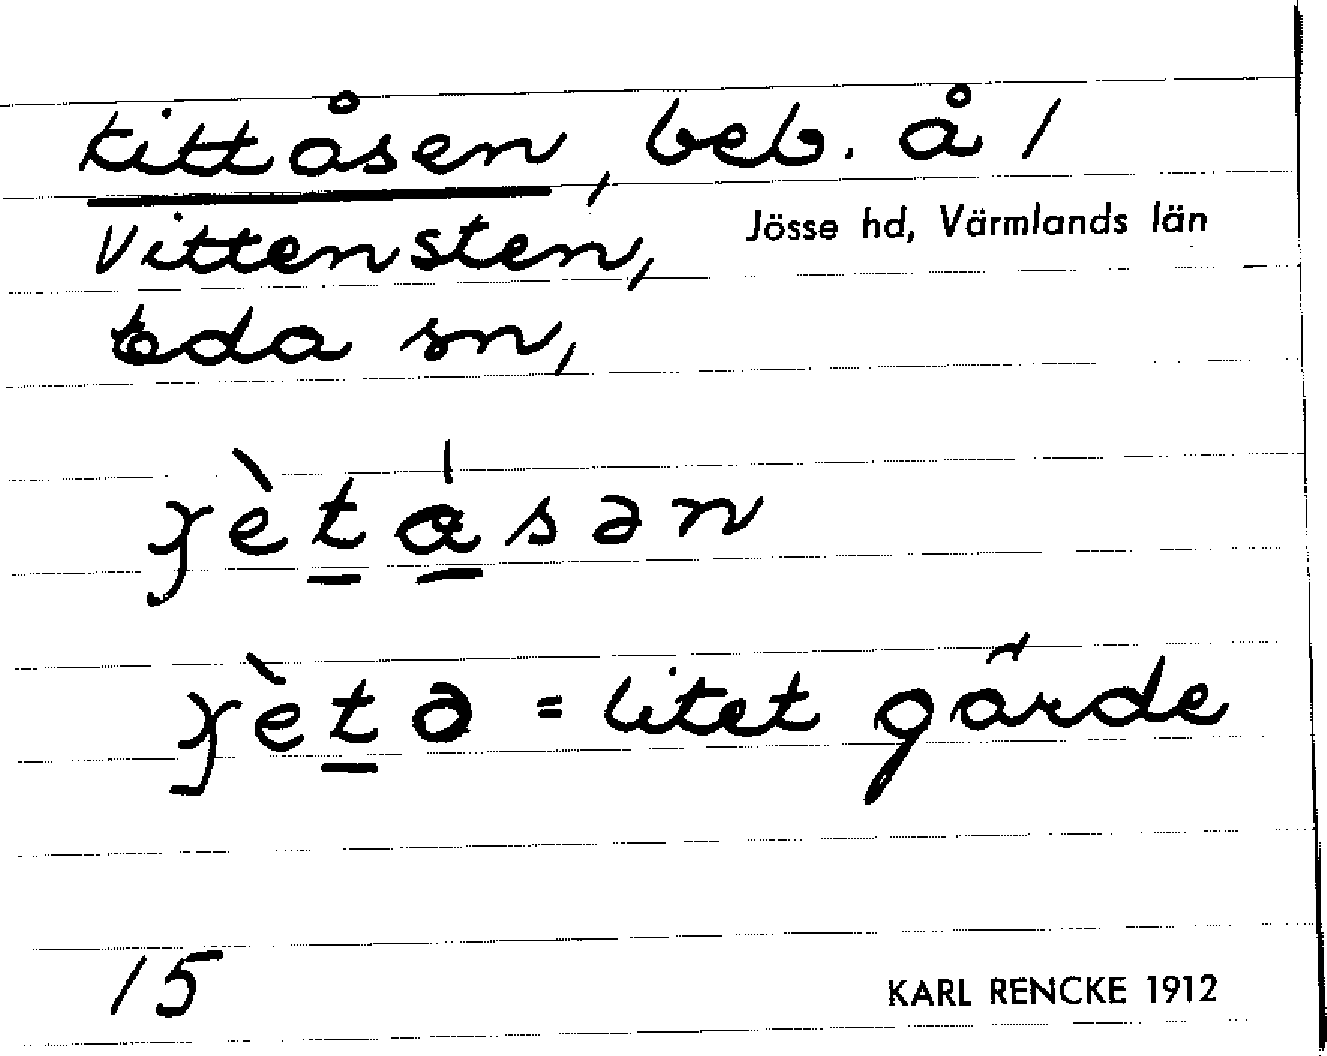 Kittåsen, beb. å 1
Vittensten,
Jösse hd, Värmlands län
Eda sn,
ɣètåsən
ɣètə = litet gärde
15
KARL RENCKE 1912